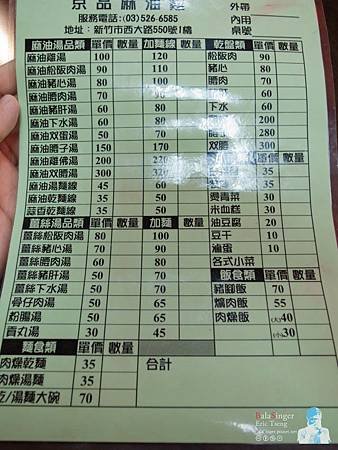 京品麻油雞
外帶
服務電話:(03)526-6585
內用
地址:新竹市西大路550號1樓
桌號
麻油湯品類 單價 數量 加麵線
麻油雞湯 100 120
麻油松阪肉湯 90 110
麻油豬心湯 70 90
麻油腰肉湯 70 90
麻油豬肝湯 60 80
麻油下水湯 60 80
麻油双蛋湯 50 70
麻油腰子湯 150 170
麻油雞佛湯 200
麻油双腰湯 300
麻油湯麵線 45
麻油乾麵線 35
蒜香乾麵線 35
乾盤類 單價 數量
松阪肉 90
豬心
腰肉
下水 60
90
双腰 280
單價 數量
35
35
燙青菜 30
米血糕 30
油豆腐 20
豆干 10
滷蛋 10
各式小菜
薑絲湯品類 單價 數量 加麵 數量
薑絲松阪肉湯 80 100
薑絲豬心湯 70 90
薑絲腰肉湯 60 80
薑絲豬肝湯 50 70
薑絲下水湯 50 70
骨仔肉湯 50 65
粉腸湯 50 65
貢丸湯 30 45
飯食類 單價 數量
豬腳飯 70
爌肉飯 55
肉燥飯 (大)40
(小)30
麵食類 單價 數量
肉燥乾麵 35
肉燥湯麵 35
乾/湯麵大碗 70
合計
BalaSinger
Eric Tseng